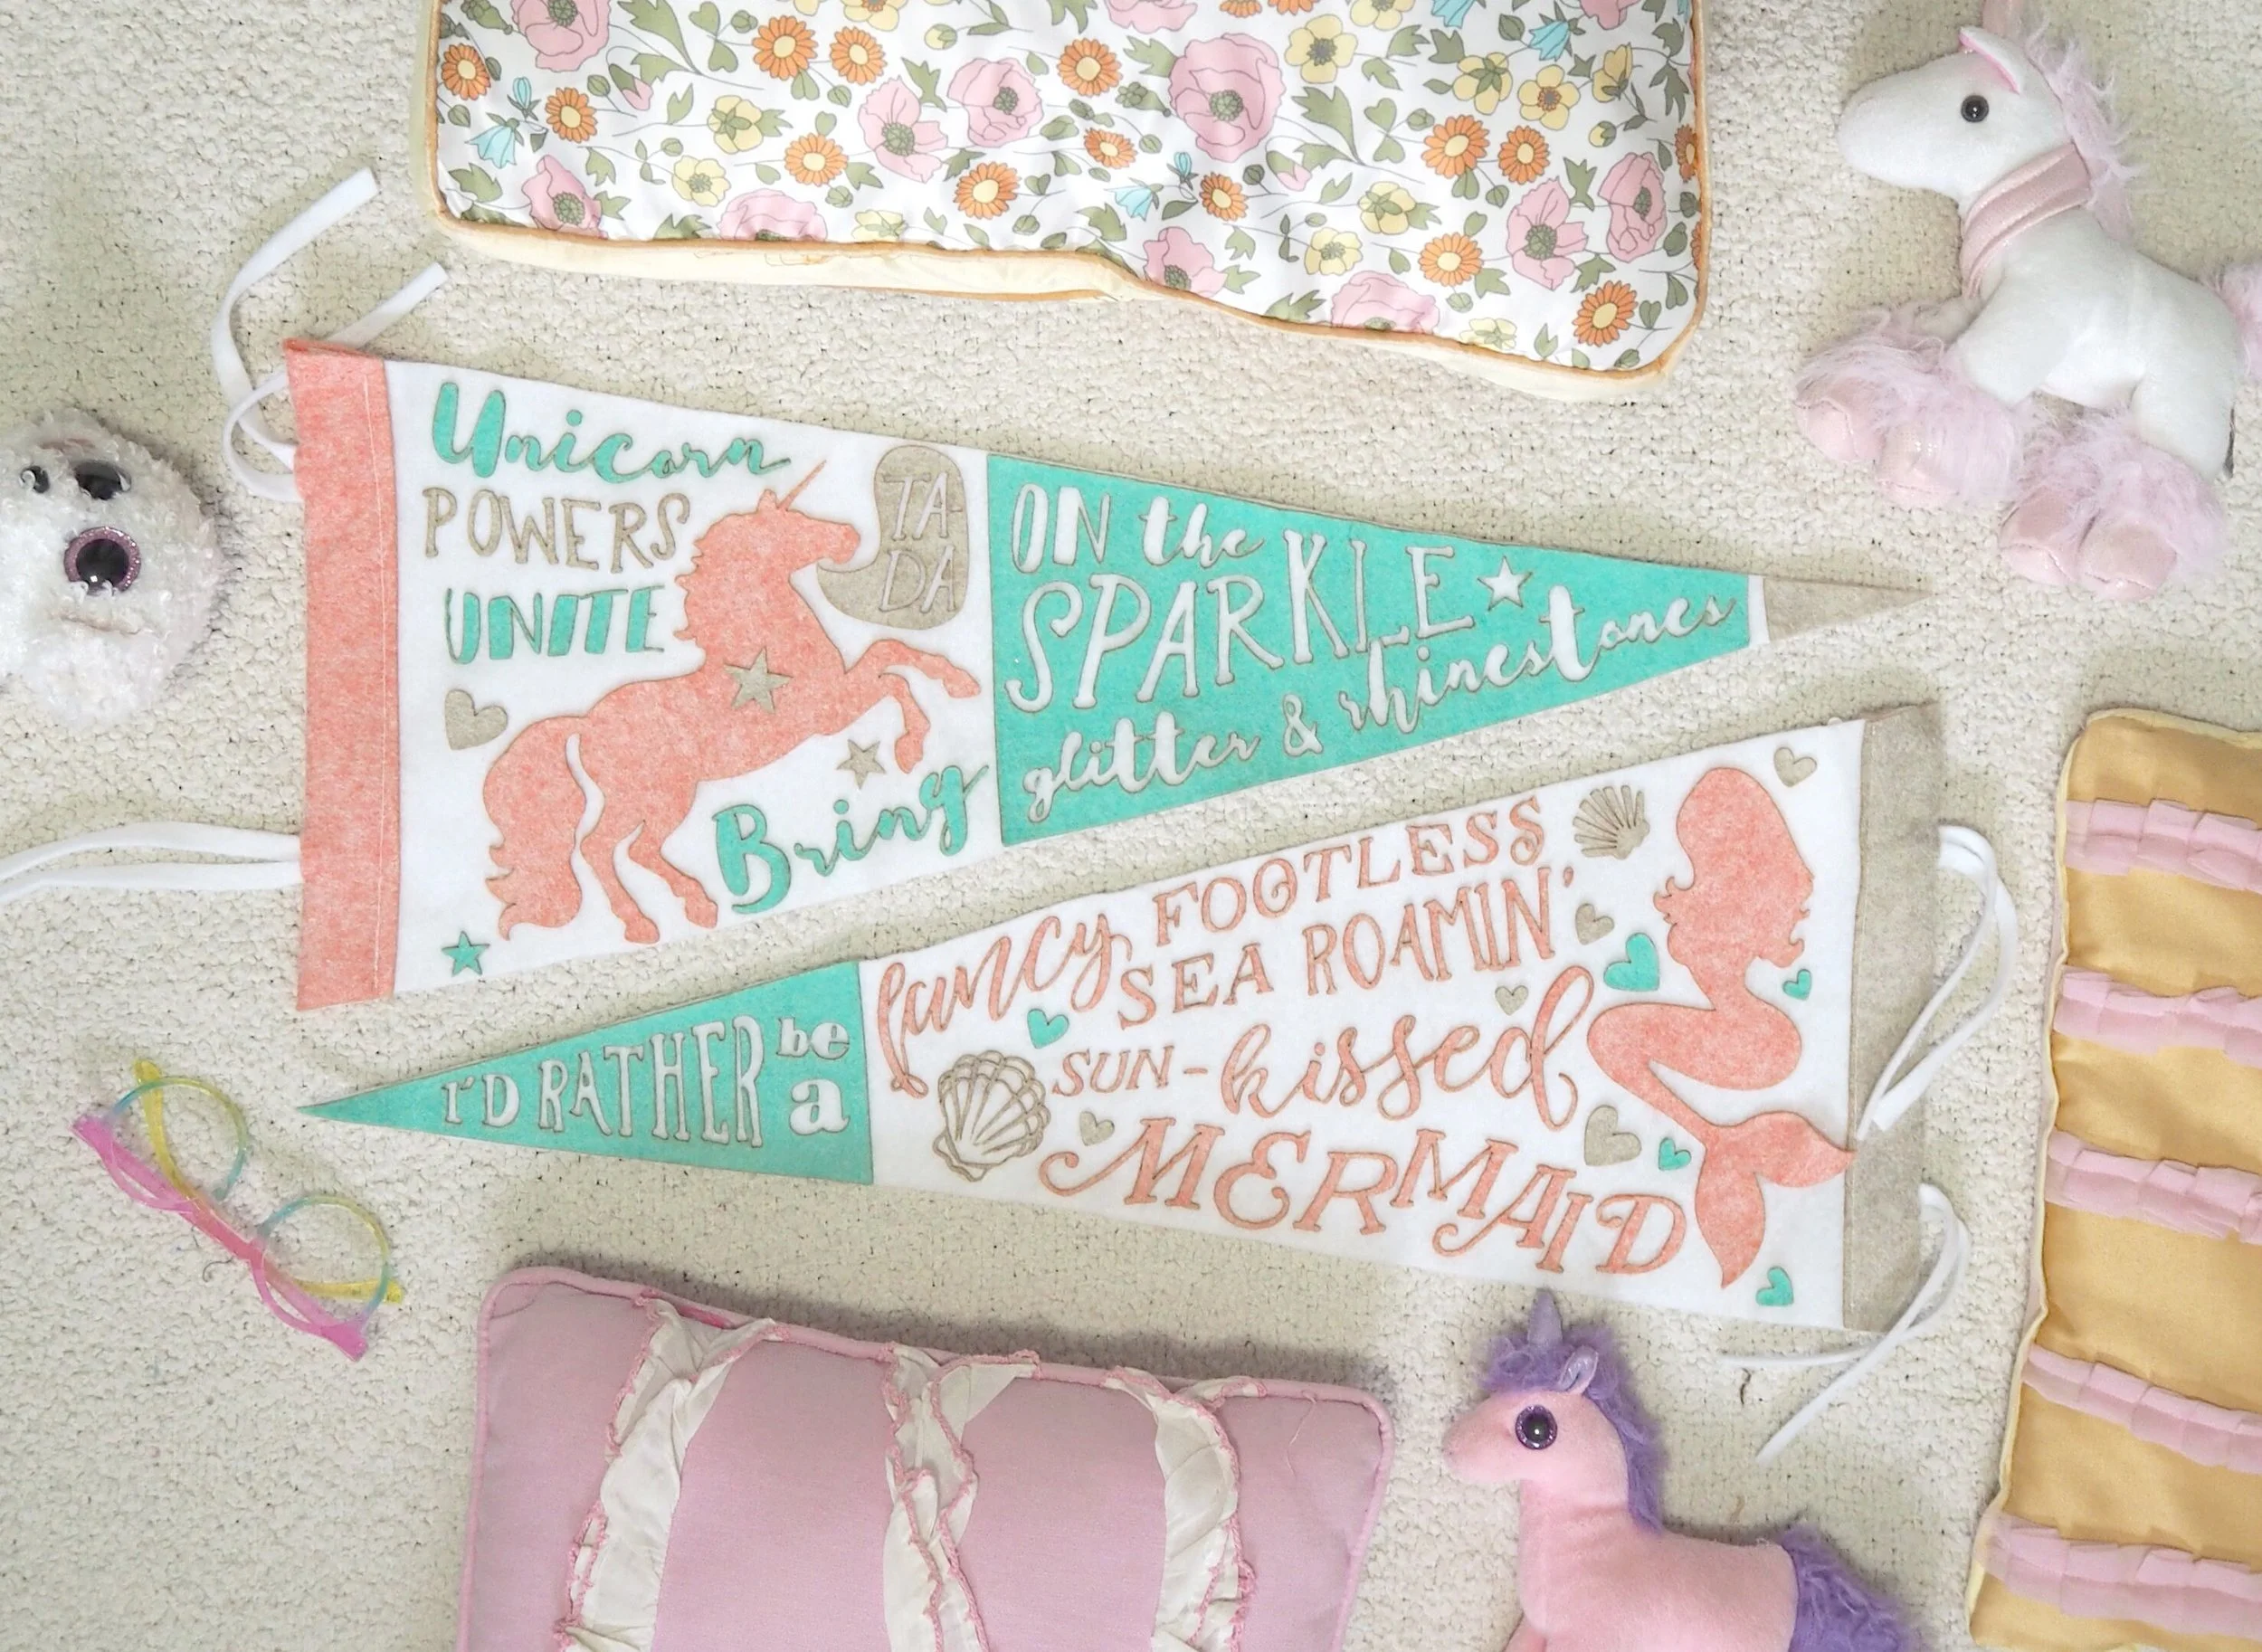 Unicorn
POWERS
UNITE
TA-
DA
Bring
ON the
SPARKLE
glitter & rhinestones
I'D RATHER be
a
fancy FOOTLESS
SEA ROAMIN'
SUN-kissed
MERMAID